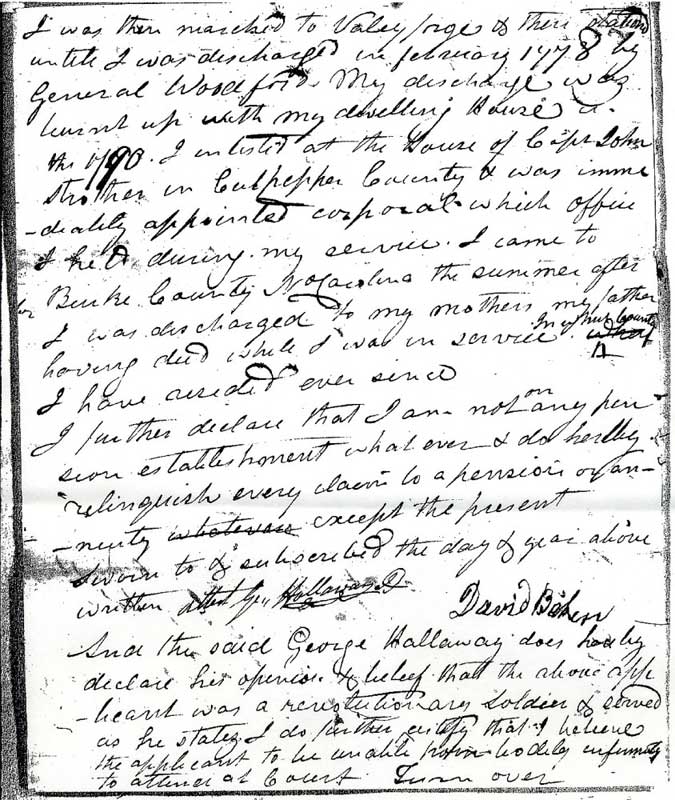 I was then marched to Valeyforge & there stationd
untill I was discharged in february 1778 by
General Woodford. My discharge was
burnt up with my dwelling House in
the 1790. I inlisted at the House of Capt John
Strother in Culpepper County & was imme
-diately appointed corporal which office
I held during my service. I came to
Burke County No Carolina the summer after
I was discharged to my mothers my father
having died while I was in service. In which County
I have resided ever since
I further declare that I am not on any pen
sion establishment what ever & do hereby
relinquish every claim to a pension or an-
-nuity whatever except the present
Sworn to & subscribed the day & year above
written attest Geo Hallaway
David Baker
And the said George Hallaway does hereby
declare his opinion & beleef that the above app
-licant was a revolutionary soldier & served
as he states I do further certify that I believe
the applicant to be unable from bodily infirmity
to attend at Court Turn over